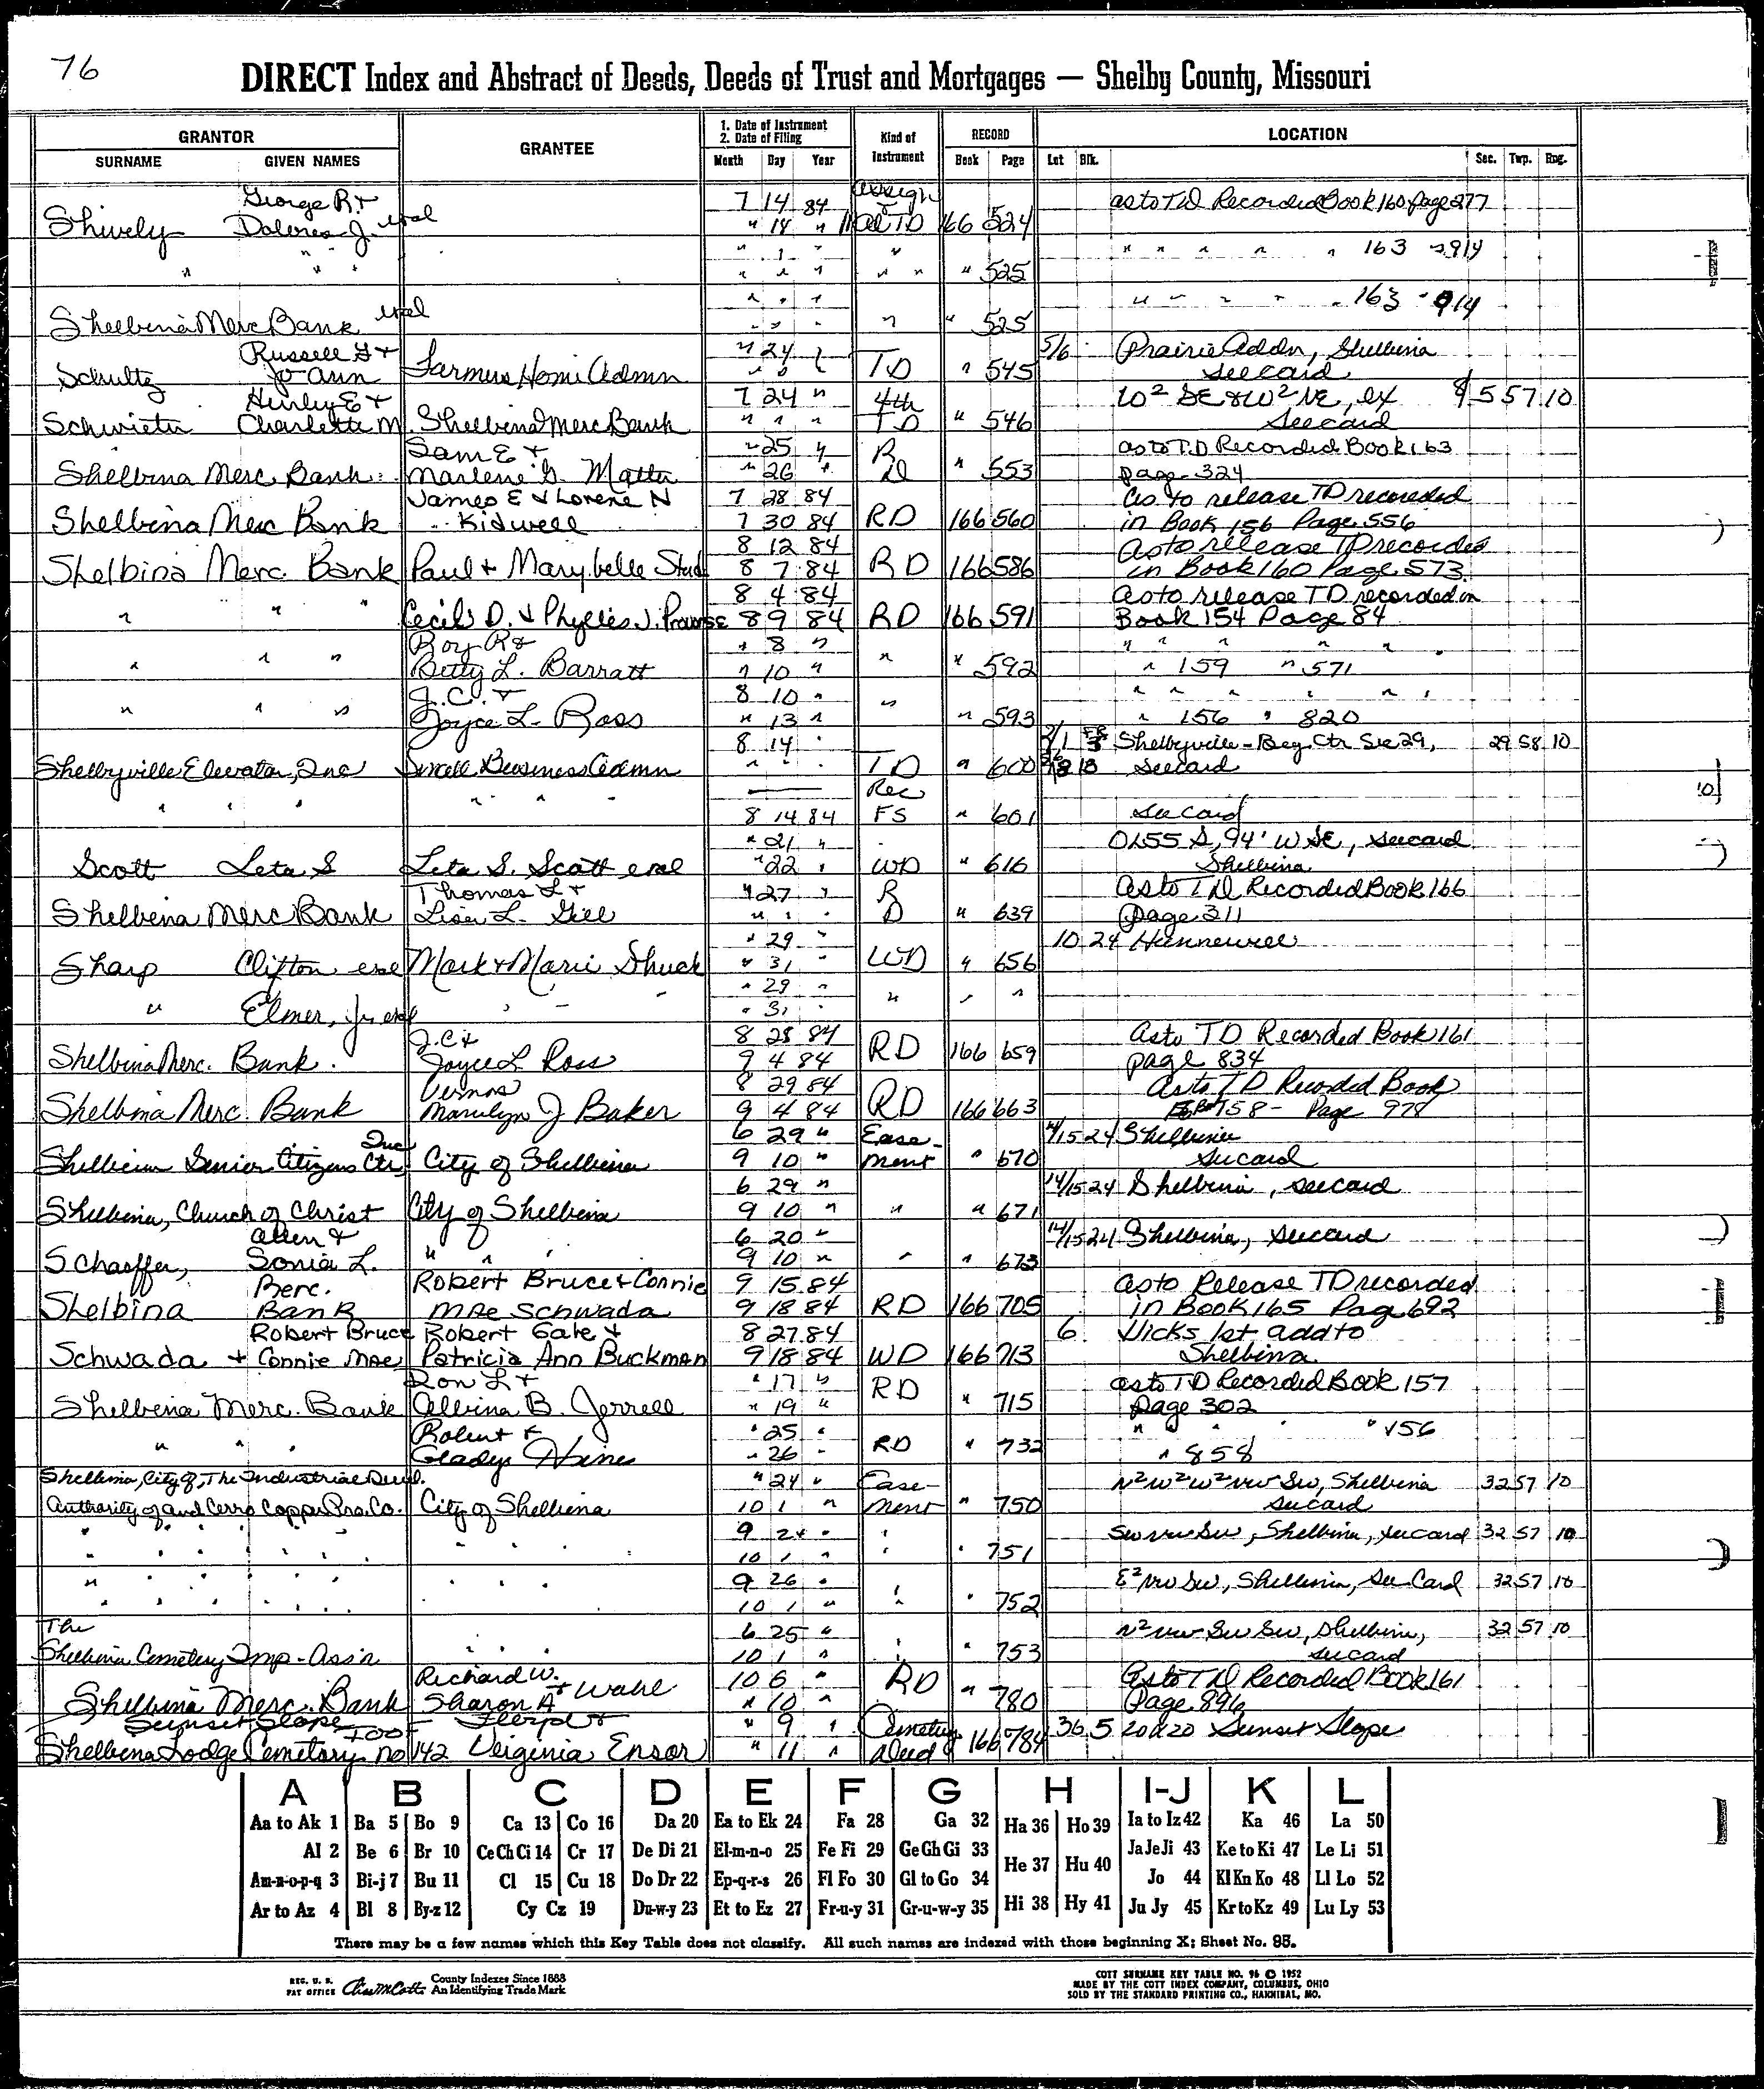 76
DIRECT Index and Abstract of Deeds, Deeds of Trust and Mortgages — Shelby County, Missouri
GRANTOR GRANTEE 1. Date of Instrument 2. Date of Filing Kind of Instrument RECORD LOCATION
SURNAME GIVEN NAMES Month Day Year Book Page Lot Blk. Sec. Twp. Rng.
George R. + 7 14 84 Assign as to TD Recorded Book 160 page 277
Shively Dolores J. " 14 " TD 166 524
" " " " " 163 " 914
" " " " " " " " " 525
" " " " " " " 163 " 914
Shelbina Merc Bank " " " " " 525
Russell G + " 24 5/6 Prairie Addn, Shelbina
Schultz Jo Ann Farmers Home Admn " " TD " 545 see card
Henley E + 7 24 " 4th W² SE & W² NE, ex 5 57 10
Schwieter Charlette M. Shelbina Merc Bank " " " TD " 546 see card
Sam E + " 25 " R as to T.D Recorded Book 163
Shelbina Merc. Bank Marlene G. Matter " 26 " D " 553 page 324
James E + Lorene N 7 28 84 as to release TD recoreded
Shelbina Merc Bank Kidwell 7 30 84 RD 166 560 in Book 156 Page 556
8 12 84 As to release TD recorded
Shelbina Merc. Bank Paul + Marybelle Stud 8 7 84 RD 166 586 in Book 160 Page 573
8 4 84 As to release TD recorded in
" " " Cecil D. + Phyllis J. 8 9 84 RD 166 591 Book 154 Page 84
Roy R + " 8 " " " " " "
" " " Betty L. Barratt " 10 " " " 592 " 159 " 571
J.C. + 8 10 " " " " " "
" " " Joyce L. Ross " 13 " " " 593 " 156 " 820
8 14 " Shelbyville - Beg. Ctr Sec 29, 29 58 10
Shelbyville Elevator, Inc Small Business Admn " " " TD " 600 see card
" " " " " " Rec
8 14 84 FS " 601 see card
" 21 " S, 94' W SE, see card
Scott Leta S Leta S. Scott et al " 22 " WD " 616 Shelbina
Thomas L + " 27 " R As to TD Recorded Book 166
Shelbina Merc Bank Lisa L. Gill " " " D " 639 page 311
" 29 " 10 24 Hunnewell
Sharp Clifton Mark + Marie Shuck " 31 " WD " 656
" 29 "
" Elmer, Jr " " " 31 " " " "
J.C + 8 28 84 As to TD Recorded Book 161
Shelbina Merc. Bank. Joyce L Ross 9 4 84 RD 166 659 page 834
Vernos 8 29 84 As to TD Recorded Book
Shelbina Merc. Bank Marilyn J Baker 9 4 84 RD 166 663 158 - Page 978
Inc 6 29 " Ease- 14/15 24 Shelbina
Shelbina Senior Citizens Ctr, City of Shelbina 9 10 " ment " 670 see card
6 29 " 14/15 24 Shelbina, see card
Shelbina, Church of Christ City of Shelbina 9 10 " " " 671
Allen + 6 20 " 14/15 24 Shelbina, see card
Schaffer, Sonia L. " " " 9 10 " " " 673
Merc. Robert Bruce + Connie 9 15 84 as to Release TD recorded
Shelbina Bank Mae Schwada 9 18 84 RD 166 705 in Book 165 Page 692
Robert Bruce Robert Gale + 8 27 84 6 Vicks 1st add to
Schwada + Connie Mae Patricia Ann Buckman 9 18 84 WD 166 713 Shelbina
Ron L + " 17 " RD as to TD Recorded Book 157
Shelbina Merc. Bank Albina B. Jerrell " 19 " " 715 page 302
Robert F " 25 " " " " 156
" " " Gladys Hines " 26 " RD " 732 " 858
Shelbina, City of, The Industrial Devel. " 24 " Ease- N² W² W² NW SW, Shelbina 32 57 10
Authority of and Cerro Copper Pro. Co. City of Shelbina 10 1 " ment " 750 see card
9 24 " SW NW SW, Shelbina, see card 32 57 10
" " " " " " " " " 10 1 " " " 751
9 26 " E² NW SW, Shelbina, See Card 32 57 10
" " " " " " " " " 10 1 " " " 752
The 6 25 " N² NW SW SW, Shelbina, 32 57 10
Shelbina Cemetery Imp. Ass'n " " " 10 1 " " " 753 see card
Richard W. 10 6 " As to TD Recorded Book 161
Shelbina Merc. Bank Sharon A + Wahl " 10 " RD " 780 Page 896
Sunset Slope IOOF Floyd + " 9 " Cemetery 36 5 20x20 Sunset Slope
Shelbina Lodge Cemetary no 142 Virginia Ensor " 11 " Deed 166 784
A B C D E F G H I-J K L
Aa to Ak 1 Ba 5 Bo 9 Ca 13 Co 16 Da 20 Ea to Ek 24 Fa 28 Ga 32 Ha 36 Ho 39 Ia to Iz 42 Ka 46 La 50
Al 2 Be 6 Br 10 Ce Ch Ci 14 Cr 17 De Di 21 El-m-n-o 25 Fe Fi 29 Ge Gh Gi 33 He 37 Hu 40 Ja Je Ji 43 Ke to Ki 47 Le Li 51
Am-n-o-p-q 3 Bi-j 7 Bu 11 Cl 15 Cu 18 Do Dr 22 Ep-q-r-s 26 Fl Fo 30 Gl to Go 34 Jo 44 Kl Kn Ko 48 Ll Lo 52
Ar to Az 4 Bl 8 By-z 12 Cy Cz 19 Du-w-y 23 Et to Ez 27 Fr-u-y 31 Gr-u-w-y 35 Hi 38 Hy 41 Ju Jy 45 Kr to Kz 49 Lu Ly 53
There may be a few names which this Key Table does not classify. All such names are indexed with those beginning X; Sheet No. 95.
REG. U. S. PAT OFFICE County Indexes Since 1888 An Identifying Trade Mark
COTT SURNAME KEY TABLE NO. 96 © 1952
MADE BY THE COTT INDEX COMPANY, COLUMBUS, OHIO
SOLD BY THE STANDARD PRINTING CO., HANNIBAL, MO.